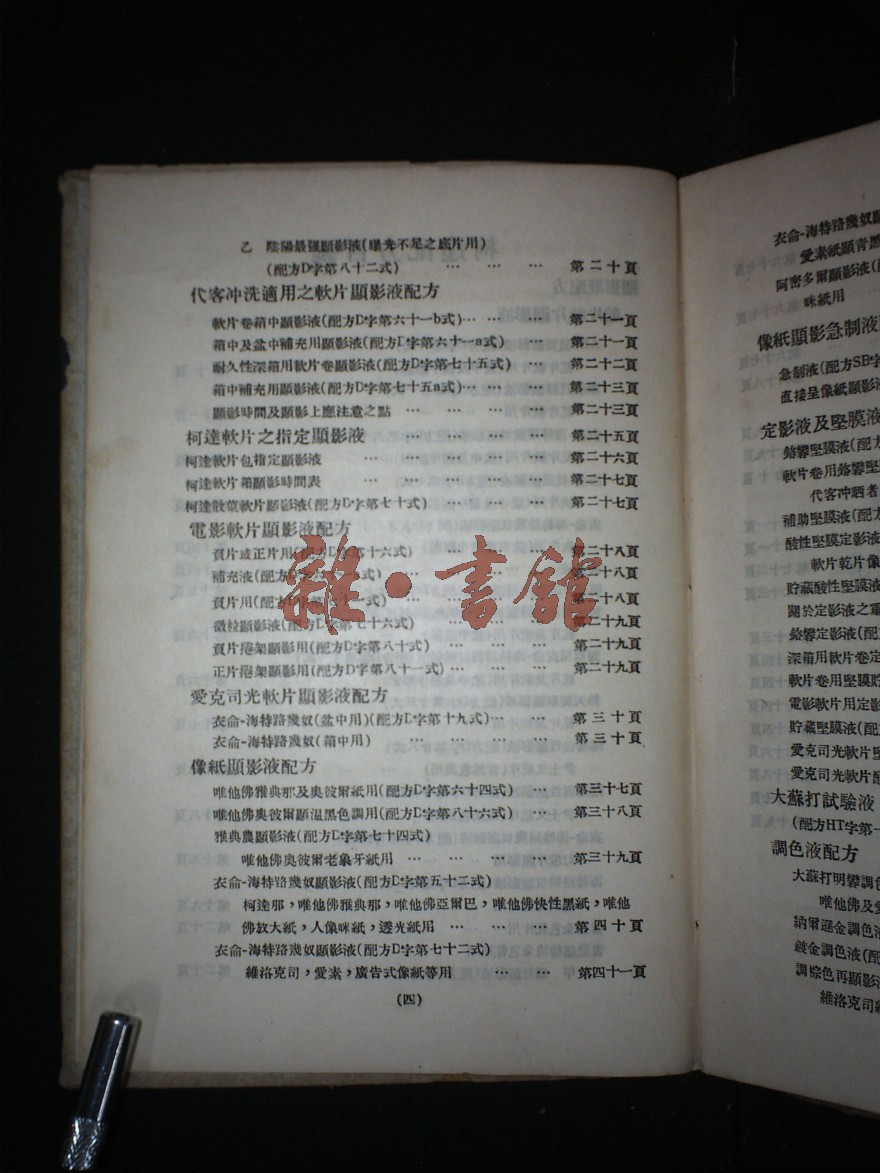 乙 陰陽最強顯影液(曝光不足之底片用)
(配方D字第八十二式) … … … 第二十頁
代客冲洗適用之軟片顯影液配方
軟片卷箱中顯影液(配方D字第六十一b式)… … 第二十一頁
箱中及盆中補充用顯影液(配方D字第六十一a式)… … 第二十一頁
耐久性深箱用軟片卷顯影液(配方D字第七十五式) … 第二十二頁
箱中補充用顯影液(配方D字第七十五a式)… … … 第二十三頁
顯影時間及顯影上應注意之點 … … … … 第二十三頁
柯達軟片之指定顯影液 … … … … 第二十五頁
柯達軟片包指定顯影液 … … … … … 第二十六頁
柯達軟片箱顯影時間表 … … … … … 第二十七頁
柯達散葉軟片顯影液(配方D字第七十式) … … … 第二十七頁
電影軟片顯影液配方
頁片或正片用(配方D字第十六式) … … … 第二十八頁
補充液(配方D字第六十一式) … … … 第二十八頁
頁片用(配方D字第 十一式) … … … 第二十八頁
微粒顯影液(配方D字第七十六式) … … … 第二十九頁
頁片捲架顯影用(配方D字第八十式) … … … 第二十九頁
正片捲架顯影用(配方D字第八十一式)… … … 第二十九頁
愛克司光軟片顯影液配方
衣侖-海特路幾奴(盆中用)(配方D字第十九式)… … 第三十頁
衣侖-海特路幾奴(箱中用) … … … … 第三十頁
像紙顯影液配方
唯他佛雅典那及奥彼爾紙用(配方D字第六十四式) … 第三十七頁
唯他佛奥彼爾顯温黑色調用(配方D字第八十六式) … 第三十八頁
雅典農顯影液(配方D字第七十四式)
唯他佛奥彼爾老象牙紙用… … … … … 第三十九頁
衣侖-海特路幾奴顯影液(配方D字第五十二式)
柯達那，唯他佛雅典那，唯他佛亞爾巴，唯他佛快性黑紙，唯他
佛放大紙，人像咪紙，透光紙用 … … … 第四十頁
衣侖-海特路幾奴顯影液(配方D字第七十二式)
維洛克司，愛素，廣告式像紙等用 … … 第四十一頁
(四)
衣侖-海特路幾奴顯
愛素紙顯青黑
阿密多爾顯影液(
咪紙用
像紙顯影急制液
急制液(配方SB字
直接呈像紙顯影液
定影液及堅膜液
鉻礬堅膜液(配方
軟片卷用鉻礬堅膜
代客冲晒者
補助堅膜液(配方
酸性堅膜定影液
軟片乾片像
貯藏酸性堅膜液
關於定影液之重
鉻礬定影液(配方
深箱用軟片卷定
軟片卷用堅膜貯
電影軟片用定影
貯藏堅膜液(配方
愛克司光軟片堅
愛克司光軟片酸
大蘇打試驗液
(配方HT字第一
調色液配方
大蘇打明礬調色
唯他佛及愛
納爾遜金調色液
鍍金調色液(配
調棕色再顯影液
維洛克司紙
雜·書館